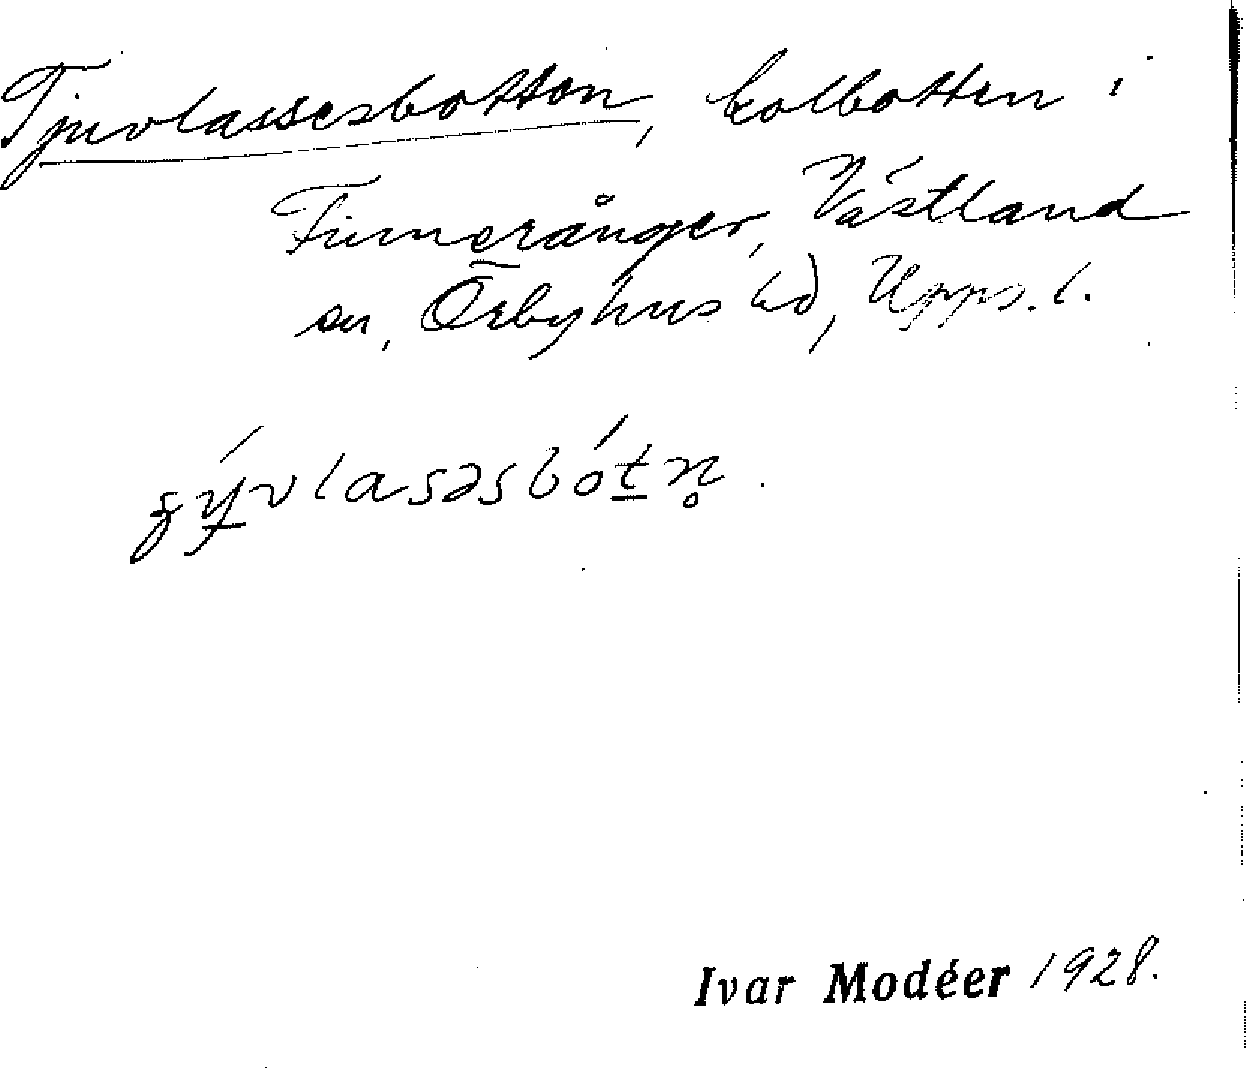 Tjuvlassesbotten, kolbotten i
Finnerånger, Västland
sn, Örbyhus hd, Upps. l.
Ivar Modéer 1928.